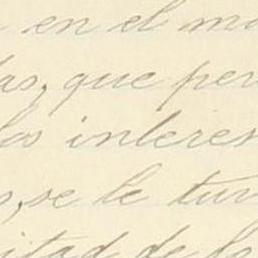 en el ma
as, que per
los interes
s, se le tur
itad de lo